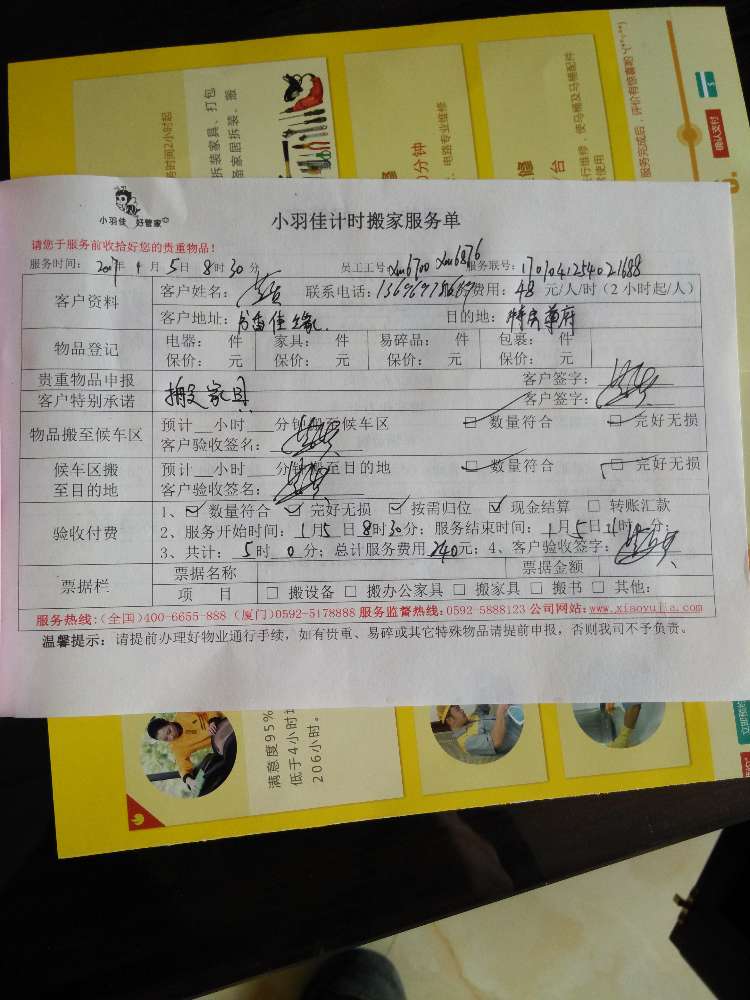 务时间2小时起
拆装家具、打包
备家居拆装、搬
分钟
电路专业维修
修
台
行维修，使马桶及马桶配件
常使用
服务完成后，评价有惊喜哟
确认支付
小羽佳 好管家
小羽佳计时搬家服务单
请您于服务前收拾好您的贵重物品！
服务时间： 年 1月 5日 8时30分 员工工号：xm6700 xm6876 服务联号：1701041254021688
客户资料 客户姓名： 联系电话： 费用：48 元/人/时（2小时起/人）
客户地址：书香佳缘 目的地：
物品登记 电器： 件 家具： 件 易碎品： 件 包裹： 件
保价： 元 保价： 元 保价： 元 保价： 元
贵重物品申报 客户签字：
客户特别承诺 搬家具 客户签字：
物品搬至候车区 预计__小时__分钟搬至候车区 数量符合 完好无损
客户验收签名：
候车区搬至目的地 预计__小时__分钟搬至目的地 数量符合 完好无损
客户验收签名：
验收付费 1、☑数量符合 ☑完好无损 ☑按需归位 ☑现金结算 □转账汇款
2、服务开始时间：1月5日8时30分；服务结束时间：1月5日 时 分；
3、共计：5时0分；总计服务费用240元；4、客户验收签字：
票据栏 票据名称 票据金额
项 目 □搬设备 □搬办公家具 □搬家具 □搬书 □其他：
服务热线：(全国)400-6655-888 (厦门)0592-5178888 服务监督热线：0592-5888123 公司网站：www.xiaoyujia.com
温馨提示：请提前办理好物业通行手续，如有贵重、易碎或其它特殊物品请提前申报，否则我司不予负责。
满意度95%
低于4小时
206小时。